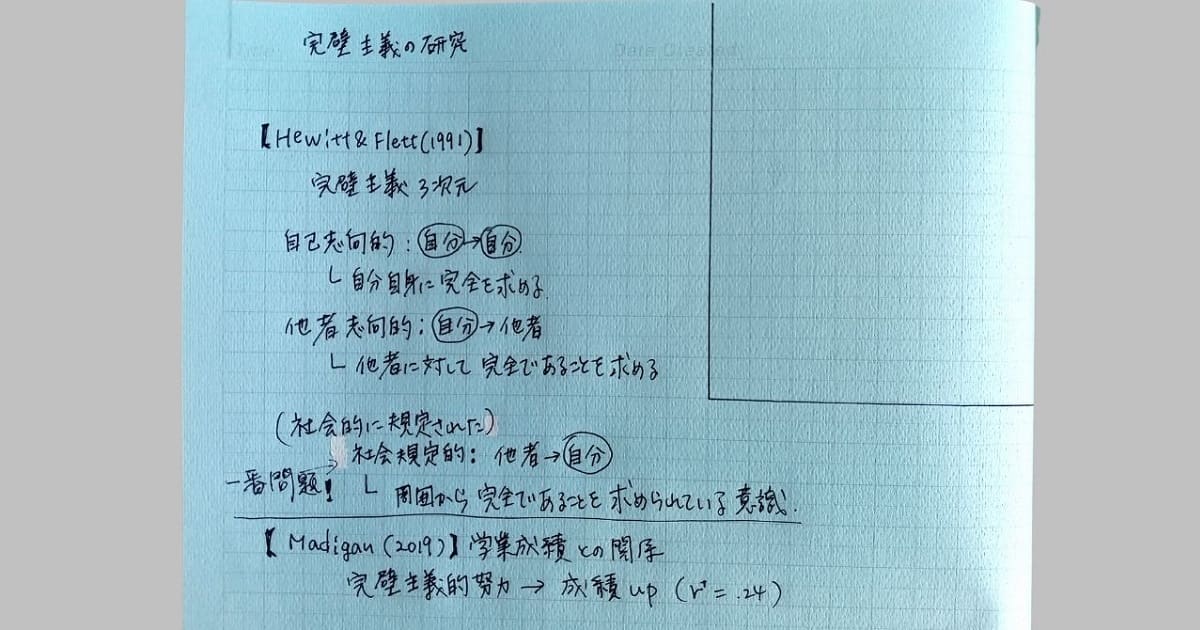 完璧主義の研究
【Hewitt & Flett(1991)】
完璧主義 3次元
自己志向的：自分→自分
└ 自分自身に完全を求める。
他者志向的：自分→他者
└ 他者に対して 完全であることを求める
(社会的に規定された)
社会規定的：他者→自分
一番問題！
└ 周囲から 完全であることを求められている 意識.
【Madigan (2019)】学業成績との関係
完璧主義的努力 → 成績 up (r⁺ = .24)